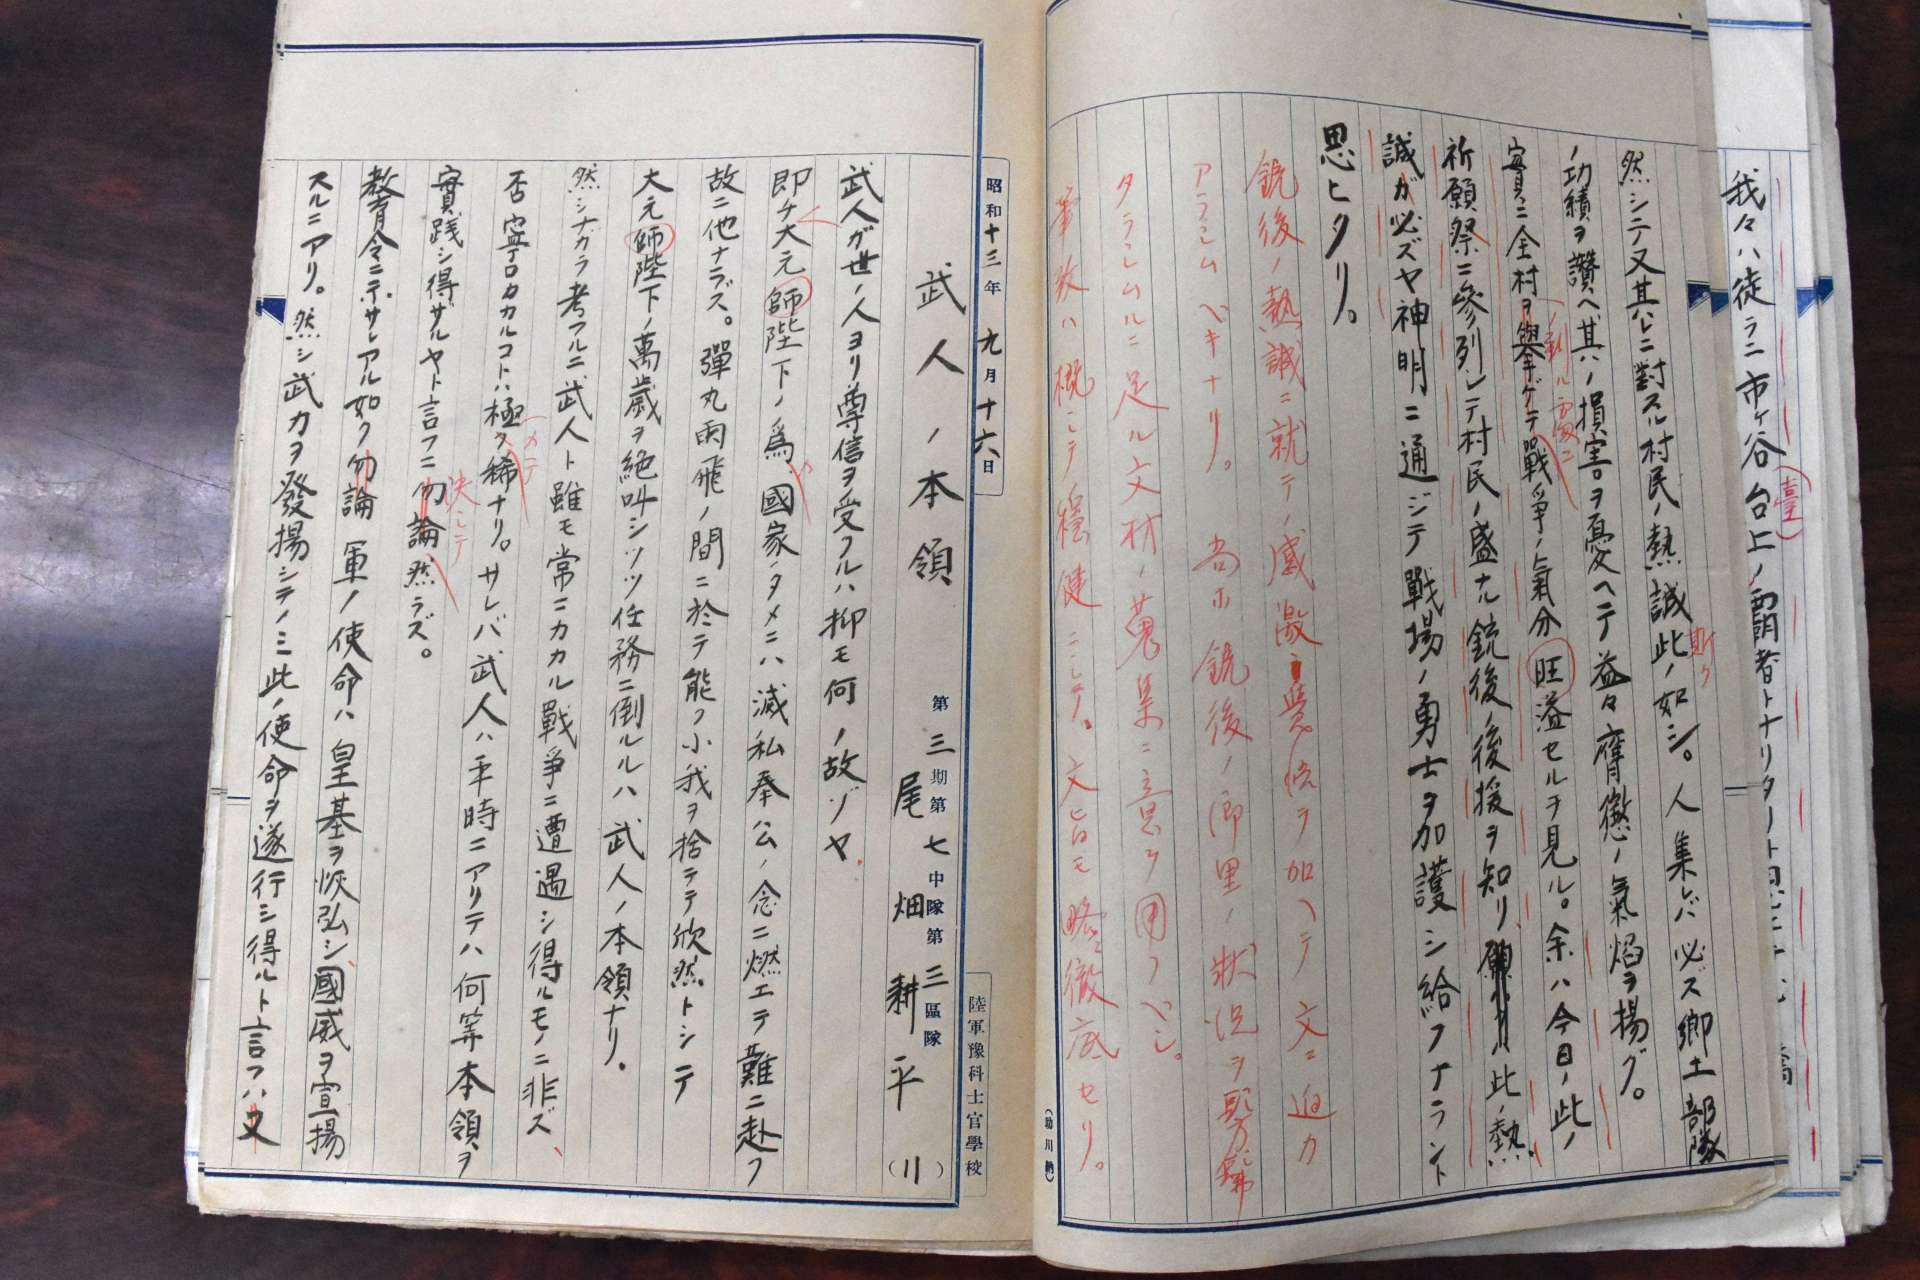 我々ハ徒ラニ市ヶ谷台上ノ覇者トナリタリト
(臺)
然シテ又其レニ對スル村民ノ熱誠此ノ如シ。人集レバ必ズ郷土部隊
斯ク
ノ功績ヲ讚ヘ其ノ損害ヲ憂ヘテ益々膺懲ノ氣焰ヲ揚グ。
實ニ全村ヲ擧ゲテ戰爭ノ氣分旺溢セルヲ見ル。余ハ今日ノ此ノ
祈願祭ニ參列シテ村民ノ盛ナル銃後ノ後援ヲ知リ此ノ熱
誠ガ必ズヤ神明ニ通ジテ戰場ノ勇士ヲ加護シ給フナラント
思ヒタリ。
銃後ノ熱誠ニ就テノ感激ヲ加ヘテ文ニ迫力
アラシムベキナリ。尚ホ銃後ノ郷里ノ狀況ヲ
タラシムルニ足ル文材ノ蒐集ニ意ヲ用フベシ。
筆致ハ概シテ穩健ニシテ。文旨モ略々徹底セリ。
(助川納)
昭和十三年九月十六日
第三期第七中隊第三區隊
陸軍豫科士官學校
武人ノ本領
尾畑耕平(川)
武人ガ世ノ人ヨリ尊信ヲ受フルハ抑モ何ノ故ゾヤ
即チ大元師陛下ノ爲國家ノタメニハ滅私奉公ノ念ニ燃エテ難ニ赴フ
故ニ他ナラズ。彈丸雨飛ノ間ニ於テ能ク小我ヲ捨テテ欣然トシテ
大元師陛下ノ萬歲ヲ絶叫シツツ任務ニ倒ルルハ武人ノ本領ナリ。
然シナガラ考フルニ武人ト雖モ常ニカカル戰爭ニ遭遇シ得ルモノニ非ズ、
否寧ロカカルコトハ極ク稀ナリ。サレバ武人ハ平時ニアリテハ何等本領ヲ
(メテ
實踐シ得ザルヤト言フニ勿論然ラズ。
決シテ
教育令ニ示サレアル如ク勿論軍ノ使命ハ皇基ヲ恢弘シ國威ヲ宣揚
スルニアリ。然シ武力ヲ發揚シテノミ此ノ使命ヲ遂行シ得ルト言フハ又